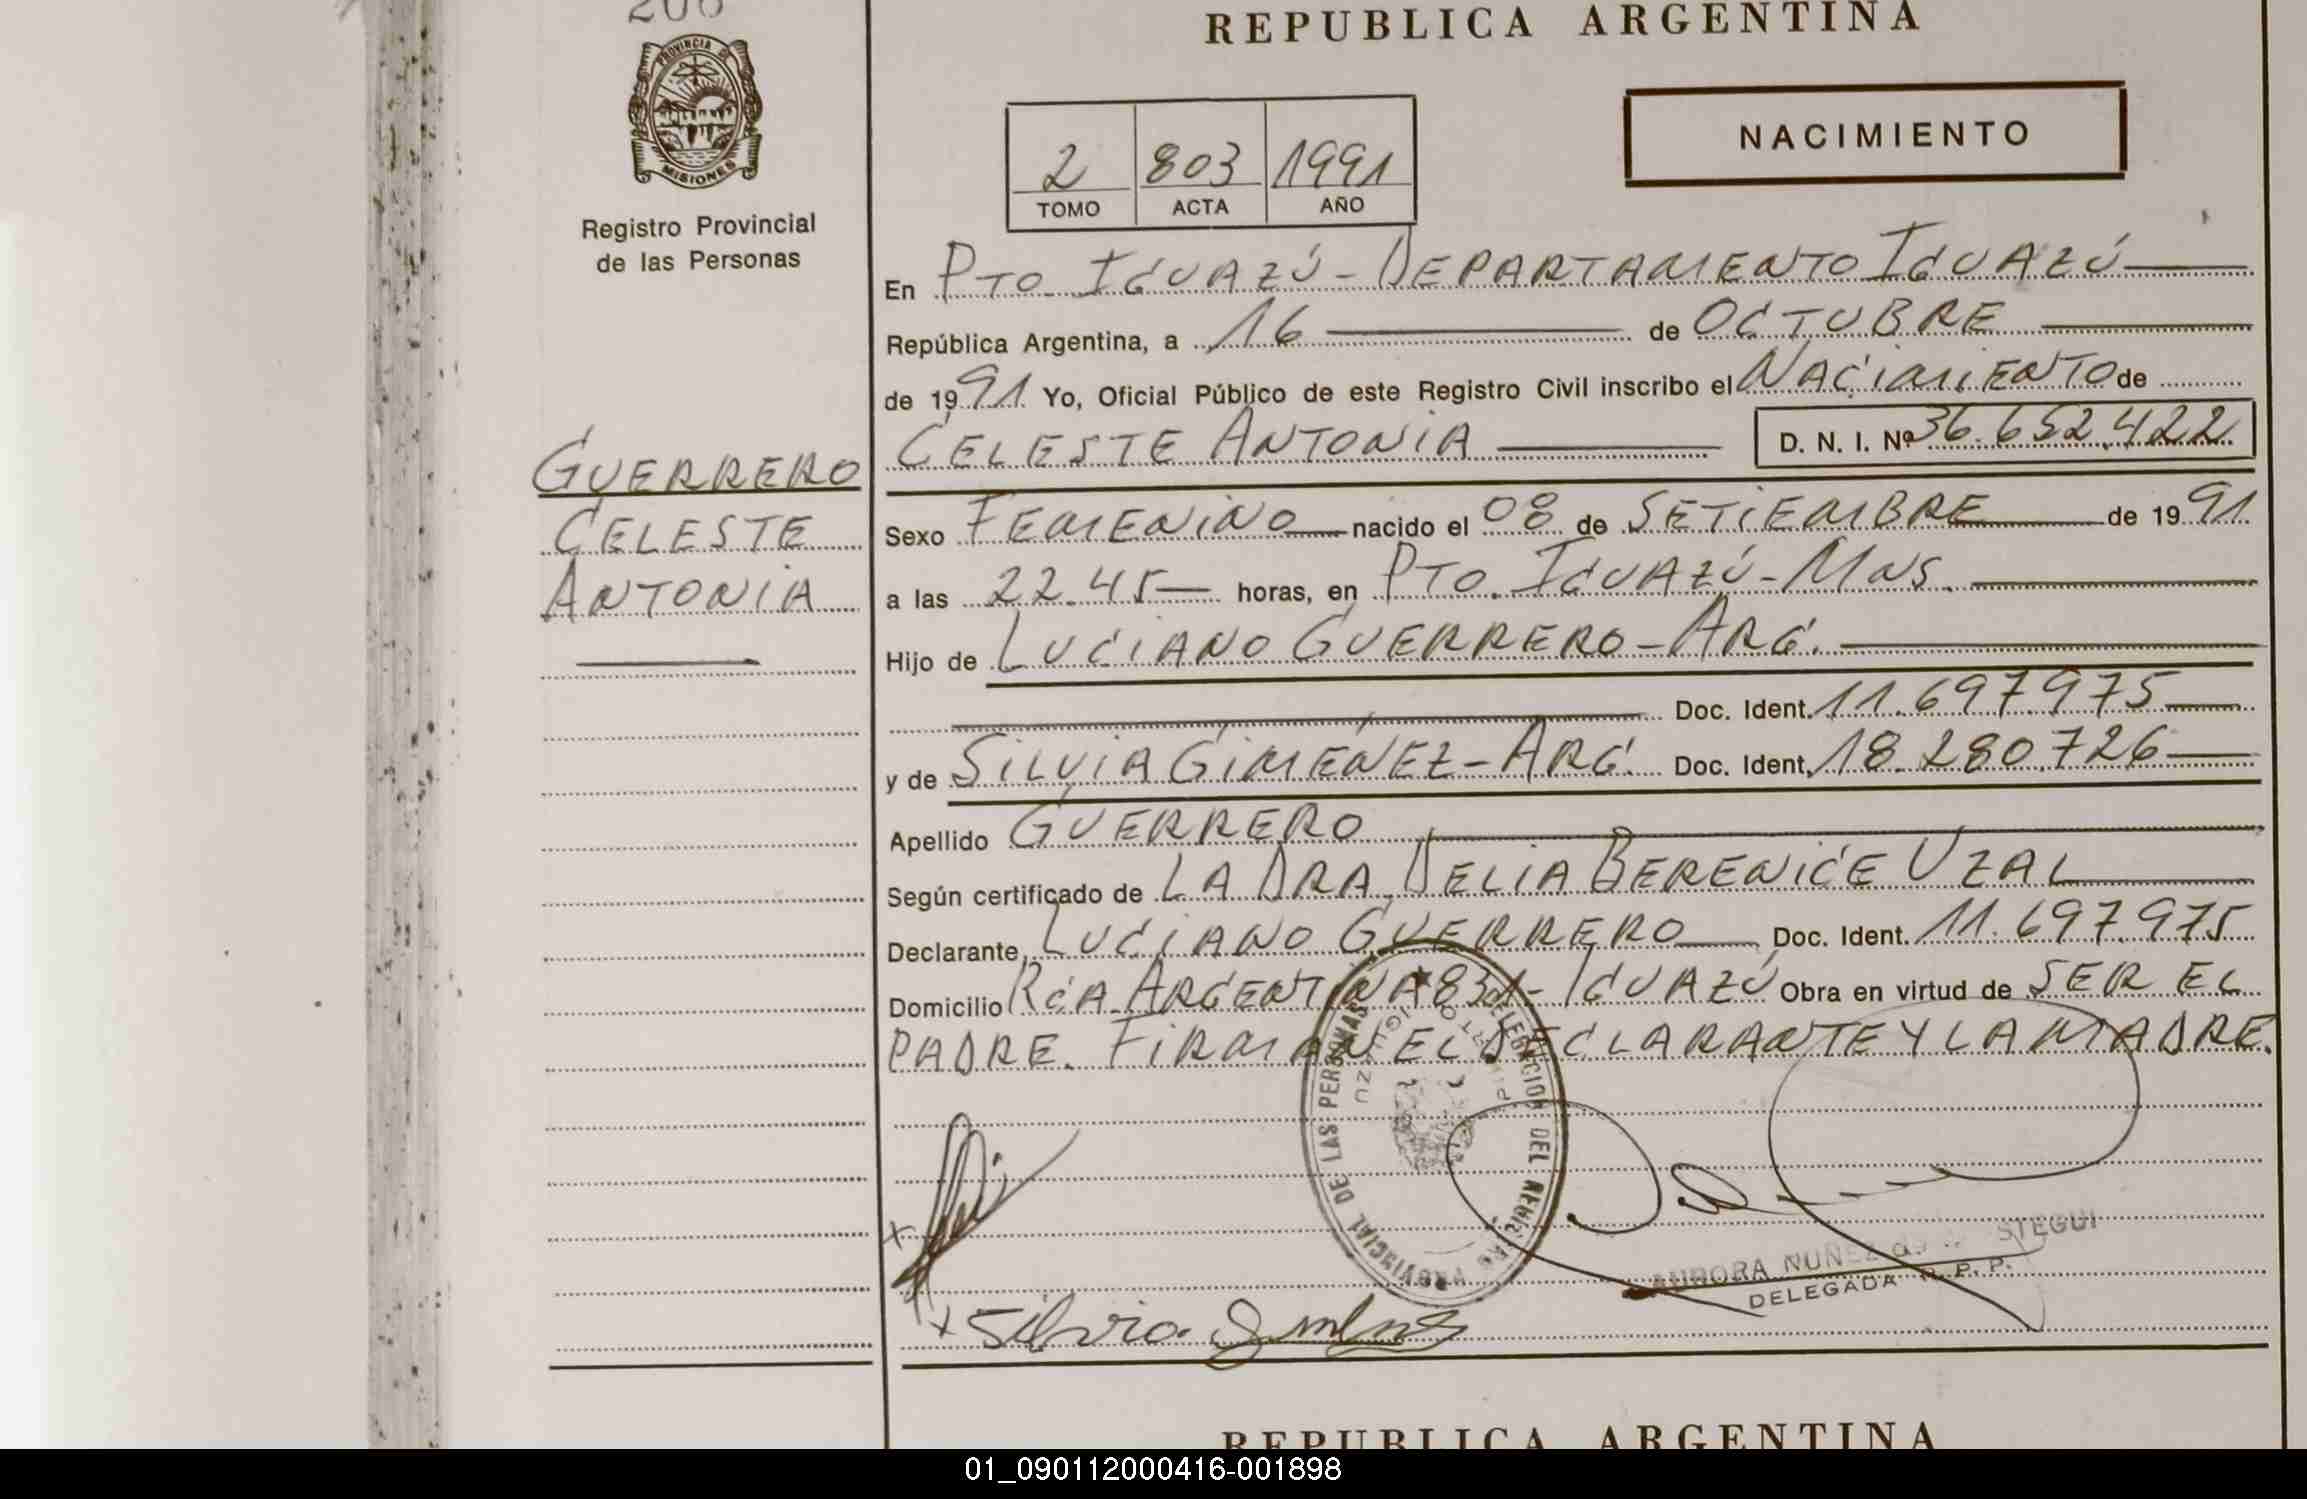 206
PROVINCIA DE
MISIONES
Registro Provincial
de las Personas
GUERRERO
CELESTE
ANTONIA
REPUBLICA ARGENTINA
NACIMIENTO
2 803 1991
TOMO ACTA AÑO
En PTO. IGUAZÚ - DEPARTAMENTO IGUAZÚ
República Argentina, a 16 de OCTUBRE
de 1991 Yo, Oficial Público de este Registro Civil inscribo el NACIMIENTO de
CELESTE ANTONIA D. N. I. Nº 36.652.422
Sexo FEMENINO nacido el 08 de SETIEMBRE de 1991
a las 22.45 horas, en PTO. IGUAZÚ - MNS.
Hijo de LUCIANO GUERRERO - ARG.
Doc. Ident. 11.697.975
y de SILVIA GIMÉNEZ - ARG. Doc. Ident. 18.280.726
Apellido GUERRERO
Según certificado de LA DRA. DELIA BERENICE UZAL
Declarante LUCIANO GUERRERO Doc. Ident. 11.697.975
Domicilio RCA. ARGENTINA 831 - IGUAZÚ Obra en virtud de SER EL
PADRE. FIRMAN EL DECLARANTE Y LA MADRE.
DELEGACION DEL REGISTRO PROVINCIAL DE LAS PERSONAS
AURORA NUÑEZ de STEGUI
DELEGADA R. P. P.
x
x Silvia
REPUBLICA ARGENTINA
01_090112000416-001898